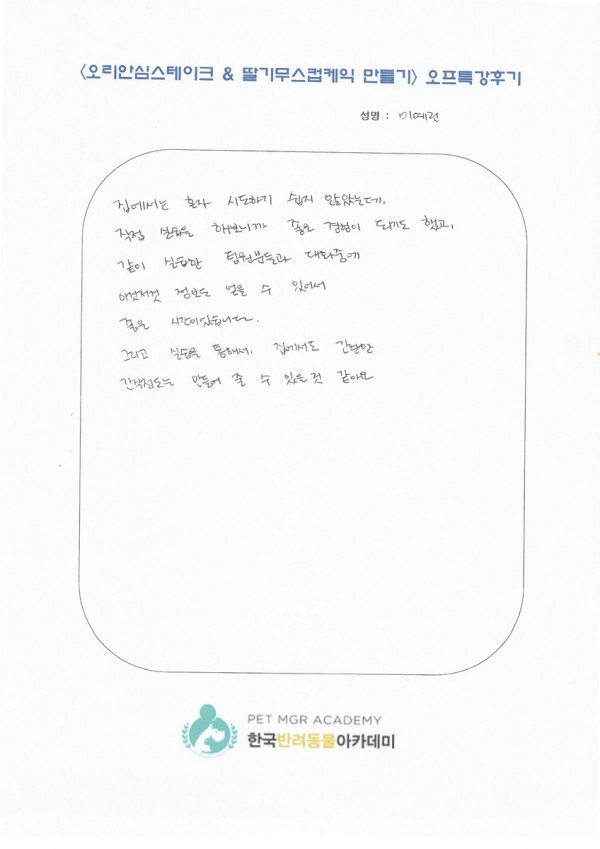 <오리안심스테이크 & 딸기무스컵케익 만들기> 오프특강후기
성명 : 이예린
집에서는 혼자 시도하기 쉽지 않았는데,
직접 실습을 해보니까 좋은 경험이 되기도 했고,
같이 실습한 팀원분들과 대화중에
이것저것 정보도 얻을 수 있어서
좋은 시간이었습니다.
그리고 실습을 통해서, 집에서도 간단한
간식정도는 만들어 줄 수 있을것 같아요
PET MGR ACADEMY
한국반려동물아카데미